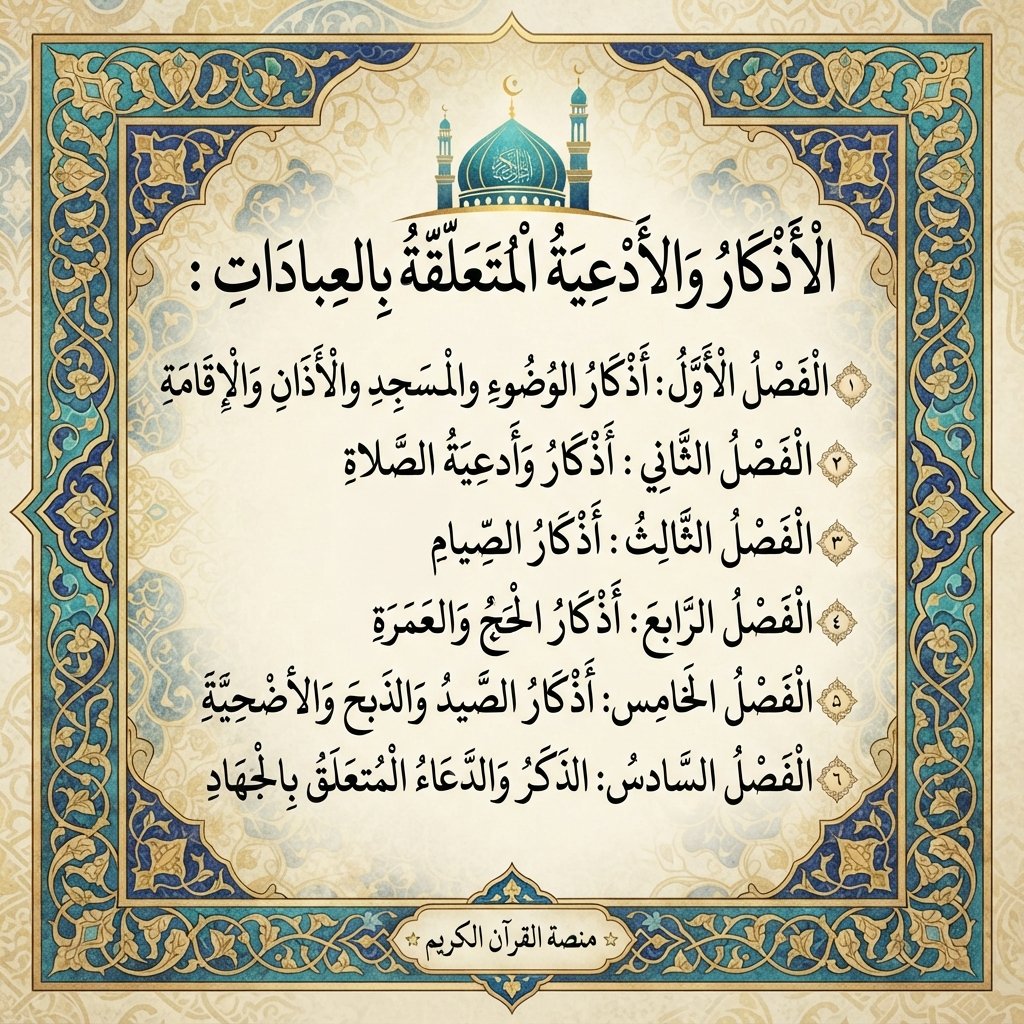 الْأَذْكَارُ وَالأَدْعِيَةُ الْمُتَعَلِّقّةُ بِالعِبادَاتِ :
١ الْفَصْلُ الْأَوَّلُ: أَذْكَارُ الوُضُوءِ والْمسَجِدِ والْأَذَانِ وَالْإِقَامَةِ
٢ الْفَصْلُ الثَّانِي : أَذْكَارُ وَأَدعِيَةُ الصَّلاةِ
٣ الْفَصْلُ الثَّالِثُ : أَذْكَارُ الصِّيامِ
٤ الْفَصْلُ الرَّابعَ: أَذْكَارُ الْحَجُّ وَالعَمَرَةِ
٥ الْفَصْلُ الخَامِس: أَذْكَارُ الصَّيدُ وَالذَبحَ وَالأضْحِيَّةَ
٦ الْفَصْلُ السَّادسُ: الذَكَرُ وَالدَّعَاءُ الْمُتعَلَقُ بِالْجهَادِ
منصة القرآن الكريم